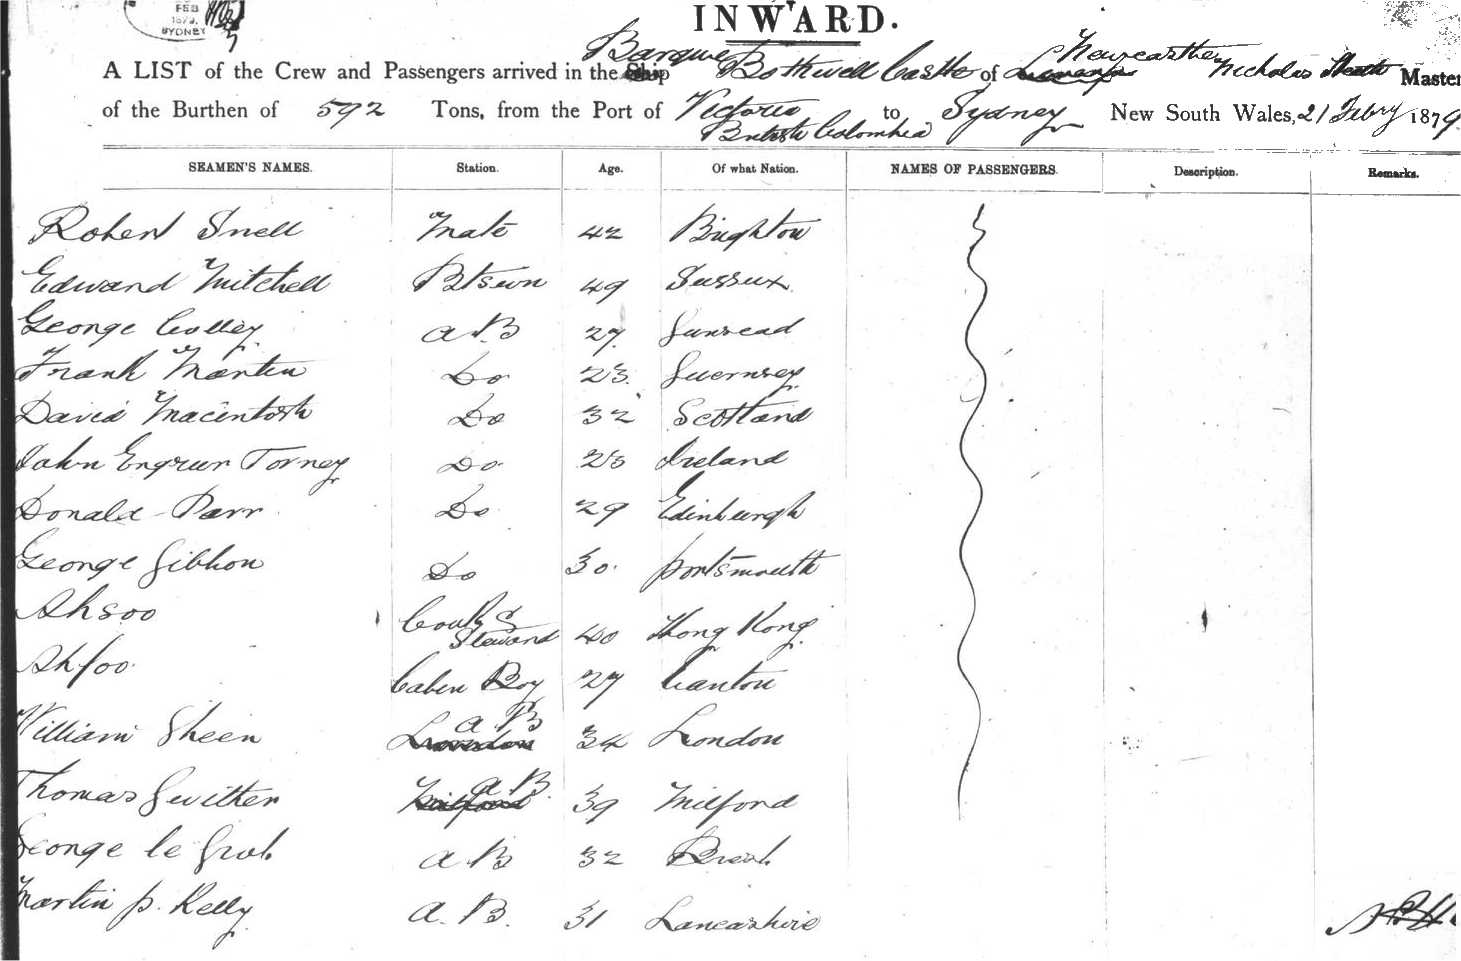 FEB
1879
SYDNEY
INWARD.
Barque Newcastle
A LIST of the Crew and Passengers arrived in the Ship Bothwell Castle of Nicholas Heath Master
of the Burthen of 592 Tons, from the Port of Victoria to Sydney New South Wales, 21 Febry 1879
British Colombia
SEAMEN'S NAMES. Station. Age. Of what Nation. NAMES OF PASSENGERS. Description. Remarks.
Robert Snell Mate 42 Brighton
Edward Mitchell Btswn 49 Sussux
George Colley A.B 27 
Frank Martin Do 23 Guernsey
David Macintosh Do 32 Scotland
John Torney Do Ireland
Donald Parr Do 29 Edinburgh
George Gibbon Do 30 Portsmouth
Ahsoo Cook & Steward 40 Hong Kong
Ahfoo Caben Boy 27 Canton
A B
William Sheen London 34 London
A B
Thomas Milford 39 Milford
George le A B 32
Martin p. Kelly A. B. 31 Lancashire